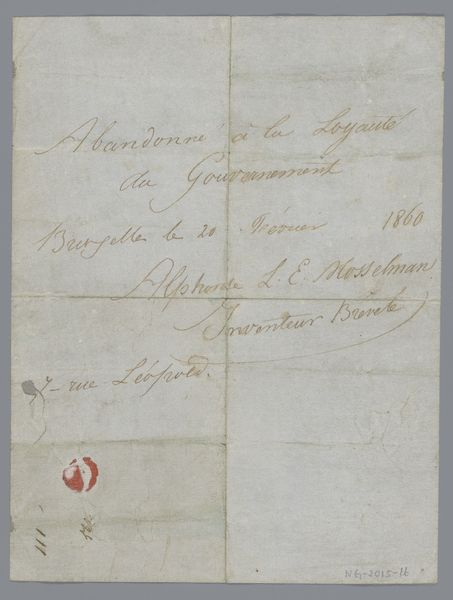 Abandonné à la Loyauté
du Gouvernement
Bruxelles le 20 Février 1860
Alphonse L. E. Mosselman
Inventeur Breveté
7 - rue Léopold.
111
NG-2015-16